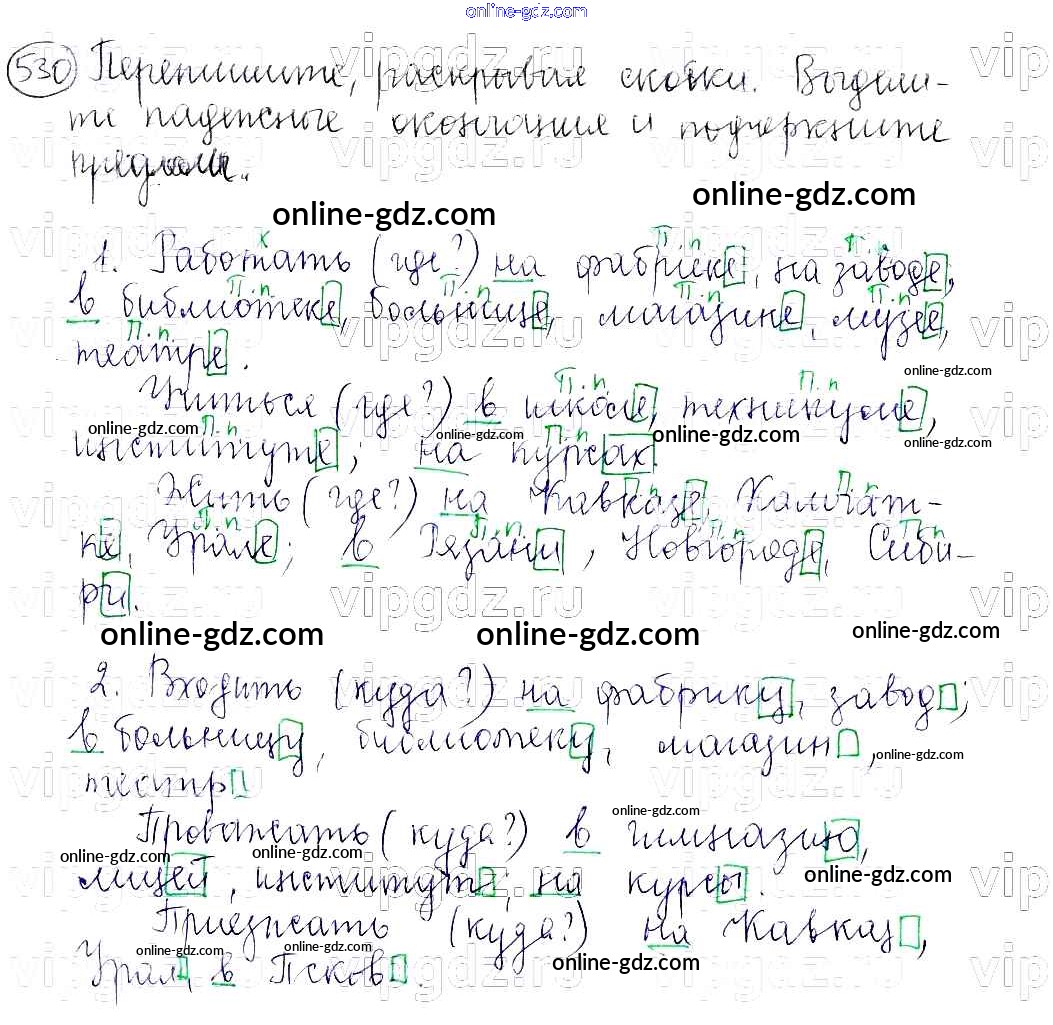 online-gdz.com
530 Перепишите, раскрывая скобки. Выдели-
те падежные окончания и подчеркните
предлоги.
online-gdz.com online-gdz.com
П.п П.п
1. Работать (где?) на фабрике, на заводе,
П.п П.п П.п П.п
в библиотеке, больнице, магазине, музее,
П.п.
театре.
online-gdz.com
П.п П.п
Учиться (где?) в школе, техникуме,
online-gdz.com online-gdz.com online-gdz.com online-gdz.com
П.п П.п
институте; на курсах.
П.п П.п
Жить (где?) на Кавказе, Камчат-
П.п П.п. П.п П.п
ке, Урале; в Рязани, Новгороде, Сиби-
ри.
online-gdz.com online-gdz.com online-gdz.com
2. Входить (куда?) на фабрику, завод;
в больницу, библиотеку, магазин,
online-gdz.com
театр
online-gdz.com
Провожать (куда?) в гимназию,
online-gdz.com online-gdz.com
лицей, институт, на курсы.
online-gdz.com
Приезжать (куда?) на Кавказ,
online-gdz.com online-gdz.com
Урал, в Псков.
online-gdz.com